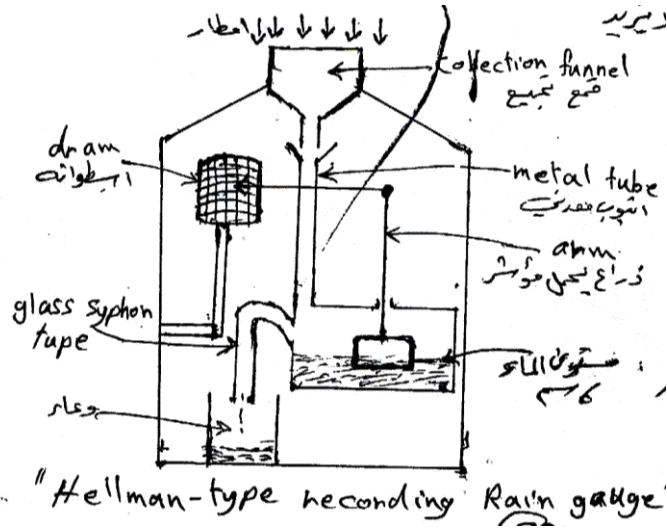 امطار
collection funnel
قمع تجميع
dram
اسطوانه
metal tube
انبوب معدني
arm
ذراع يحمل مؤشر
glass syphon
tupe
مستوى الماء
وعاء
"Hellman-type recording Rain gauge"